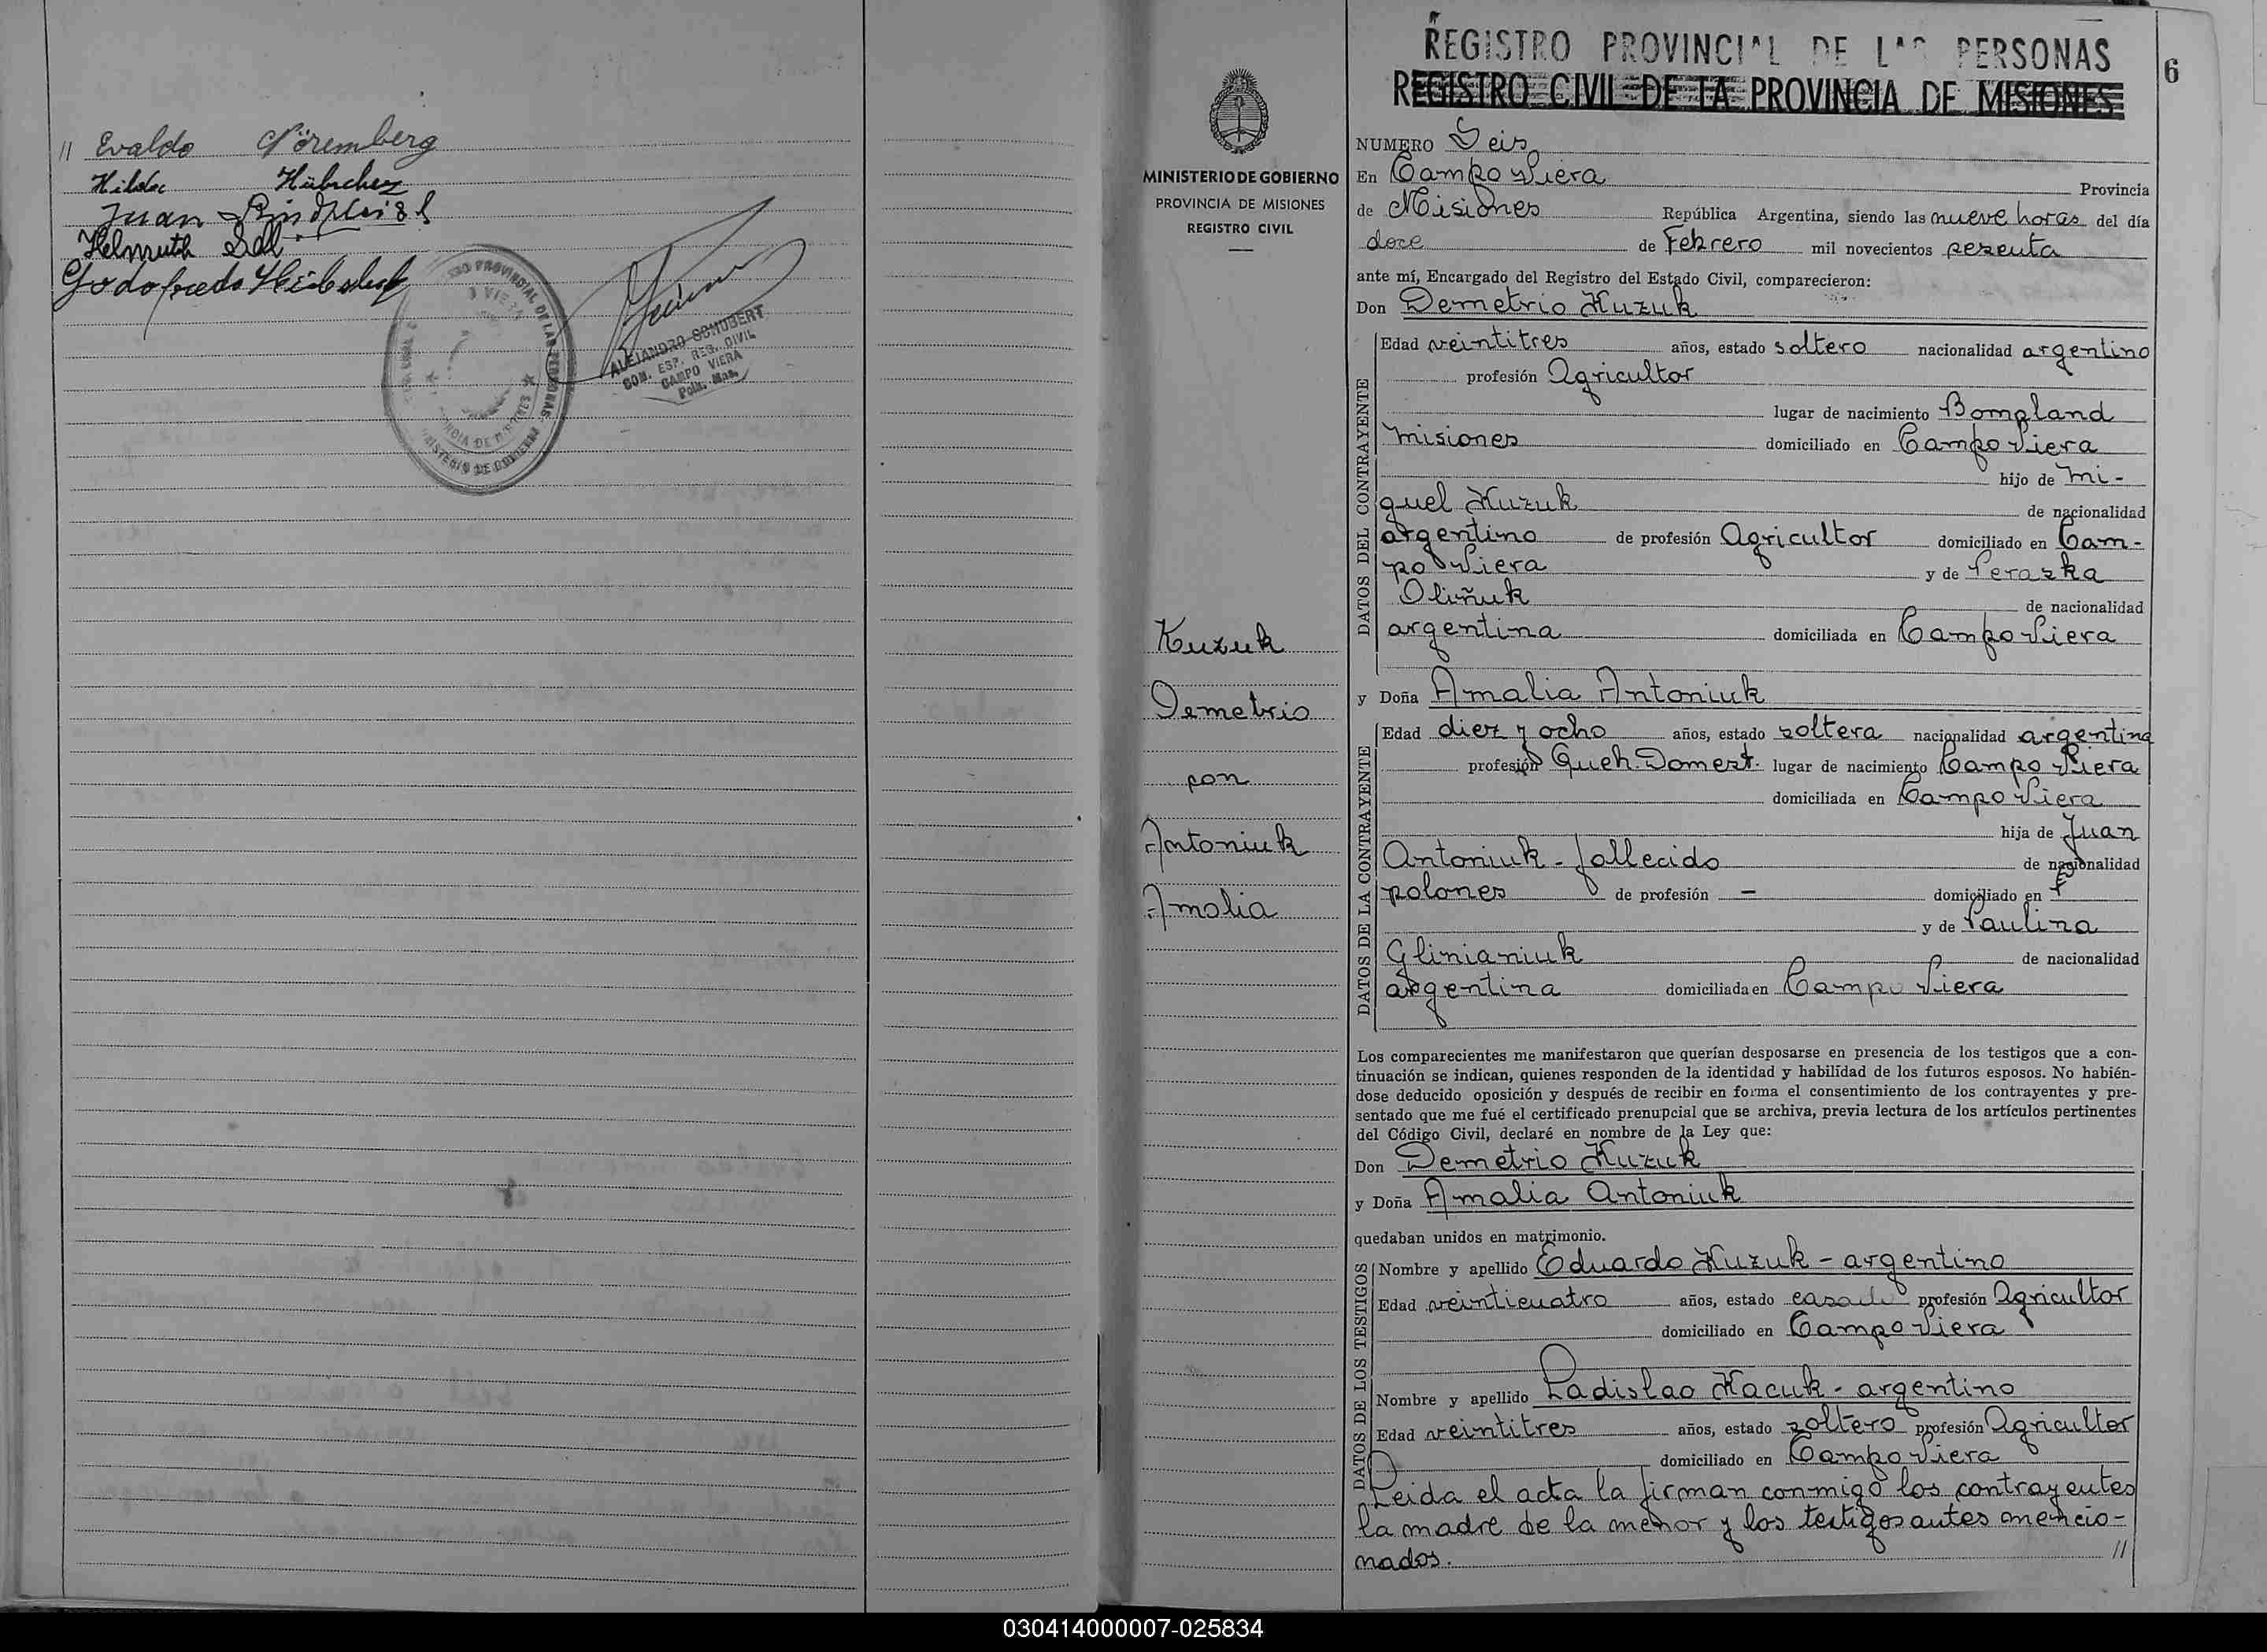 // Evaldo Nöremberg
Hilda
Juan
Helmuth
Godofredo
ALEJANDRO SCHUBERT
REG. CIVIL
CAMPO VIERA
MINISTERIO DE GOBIERNO
PROVINCIA DE MISIONES
REGISTRO CIVIL
Kuzuk
Demetrio
con
Antoniuk
Amalia
REGISTRO PROVINCIAL DE LAS PERSONAS
REGISTRO CIVIL DE LA PROVINCIA DE MISIONES
6
NUMERO Seis
En Campo Viera Provincia
de Misiones República Argentina, siendo las nueve horas del día
doce de Febrero mil novecientos sesenta
ante mí, Encargado del Registro del Estado Civil, comparecieron:
Don Demetrio Kuzuk
DATOS DEL CONTRAYENTE
Edad veintitres años, estado soltero nacionalidad argentino
profesión Agricultor
lugar de nacimiento Bompland
Misiones domiciliado en Campo Viera
hijo de Mi-
guel Kuzuk de nacionalidad
argentino de profesión Agricultor domiciliado en Cam-
po Viera y de Peraska
Oliñuk de nacionalidad
argentina domiciliada en Campo Viera
y Doña Amalia Antoniuk
DATOS DE LA CONTRAYENTE
Edad diez y ocho años, estado soltera nacionalidad argentina
profesión Queh. Domest. lugar de nacimiento Campo Viera
domiciliada en Campo Viera
hija de Juan
Antoniuk - fallecido de nacionalidad
polones de profesión — domiciliado en
y de Paulina
Glinianiuk de nacionalidad
argentina domiciliada en Campo Viera
Los comparecientes me manifestaron que querían desposarse en presencia de los testigos que a con-
tinuación se indican, quienes responden de la identidad y habilidad de los futuros esposos. No habién-
dose deducido oposición y después de recibir en forma el consentimiento de los contrayentes y pre-
sentado que me fué el certificado prenupcial que se archiva, previa lectura de los artículos pertinentes
del Código Civil, declaré en nombre de la Ley que:
Don Demetrio Kuzuk
y Doña Amalia Antoniuk
quedaban unidos en matrimonio.
DATOS DE LOS TESTIGOS
Nombre y apellido Eduardo Kuzuk - argentino
Edad veinticuatro años, estado casado profesión Agricultor
domiciliado en Campo Viera
Nombre y apellido Ladislao Kacuk - argentino
Edad veintitres años, estado soltero profesión Agricultor
domiciliado en Campo Viera
Leida el acta la firman conmigo los contrayentes
la madre de la menor y los testigos antes mencio-
nados. //
030414000007-025834